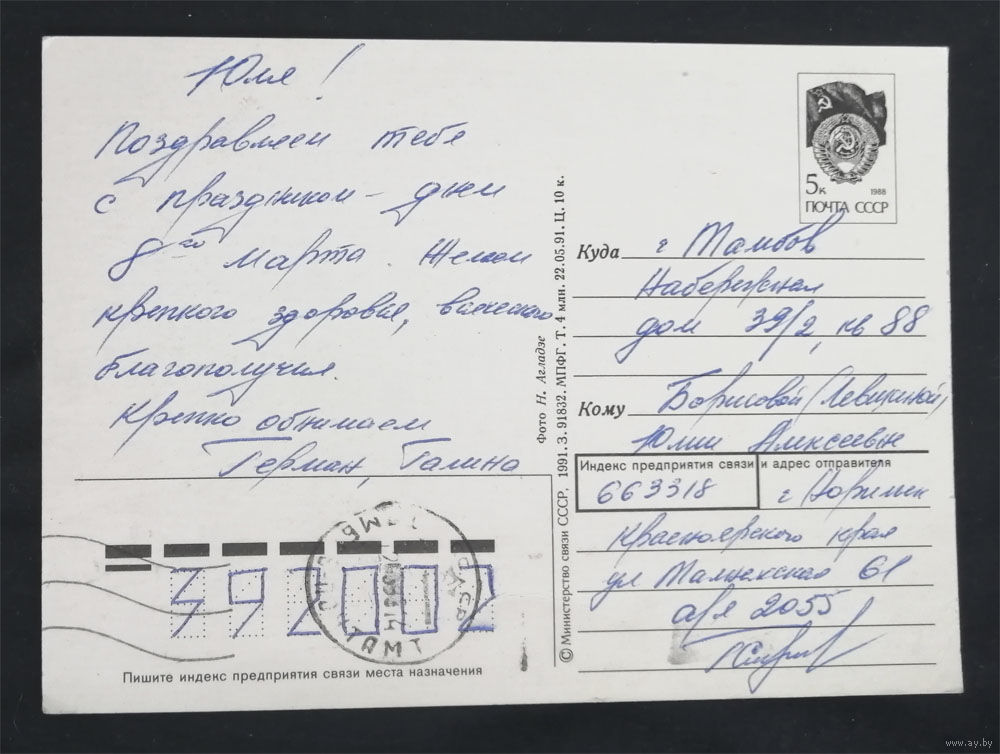 Юля!
Поздравляем тебя
с праздником – днем
8го марта. Желаем
крепкого здоровья, всяческого
благополучия.
Крепко обнимаем
Герман, Галина
5к
1988
ПОЧТА СССР
Куда г Тамбов
Набережная
дом 39/2, кв 88
Кому Борисовой (Левикиной)
Юлии Алексеевне
Индекс предприятия связи и адрес отправителя
663318 г Норильск
Красноярского края
ул Талнахская 61
а/я 2055
Фото Н. Агладзе
© Министерство связи СССР, 1991. З. 91832. МПФГ. Т. 4 млн. 22.05.91. Ц. 10 к.
392002
Пишите индекс предприятия связи места назначения
www.ay.by